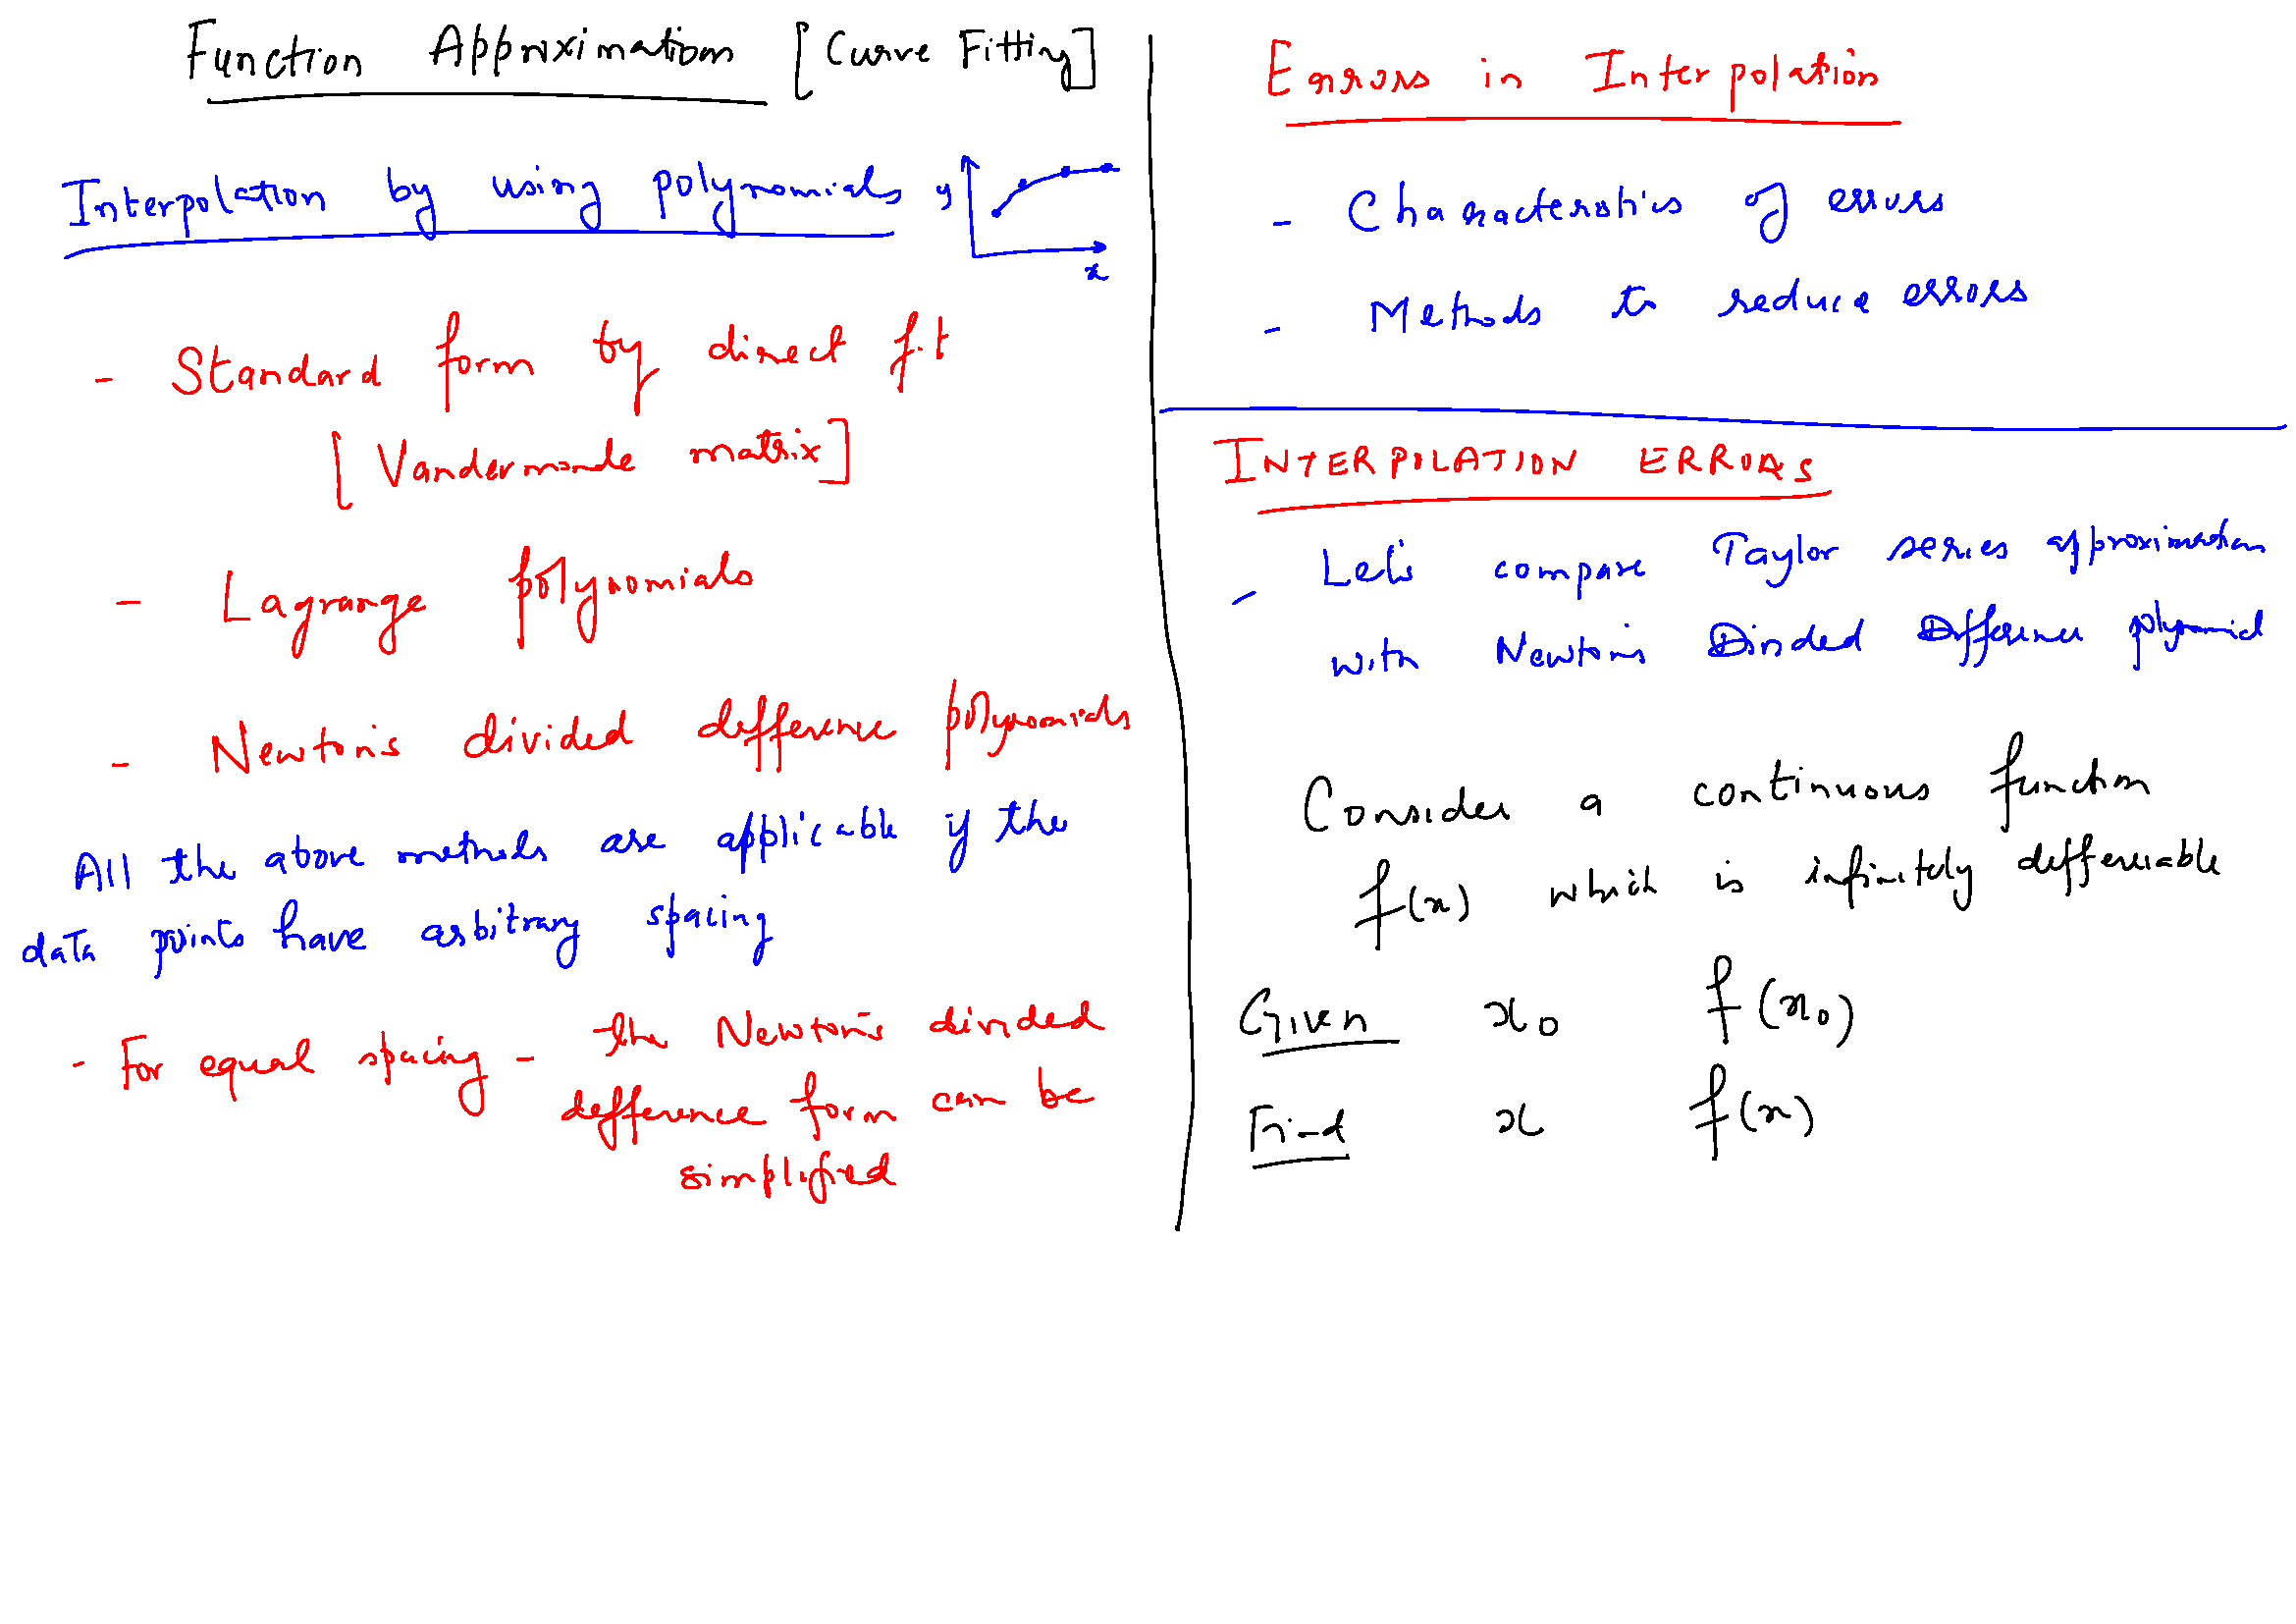 Function Approximation [Curve Fitting]
Interpolation by using polynomials
y
x
- Standard form by direct fit
[Vandermonde matrix]
- Lagrange polynomials
- Newton's divided difference polynomials
All the above methods are applicable if the
data points have arbitrary spacing
- For equal spacing - the Newton's divided
difference form can be
simplified
Errors in Interpolation
- Characteristics of errors
- Methods to reduce errors
INTERPOLATION ERRORS
- Let's compare Taylor series approximation
with Newton's Divided Difference polynomial
Consider a continuous function
f(x) which is infinitely differentiable
Given x₀ f(x₀)
Find x f(x)